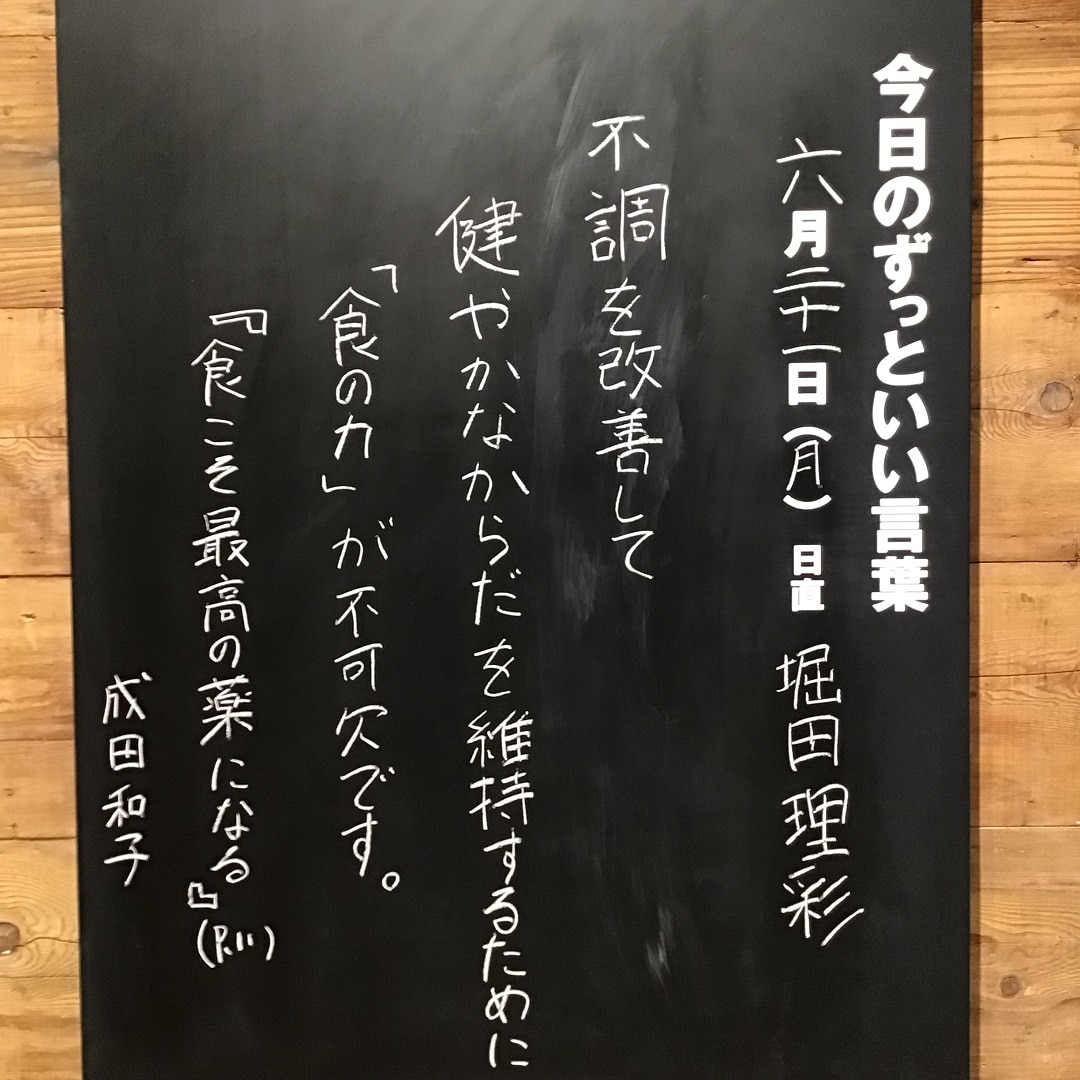 今日のずっといい言葉
六月二十一日(月) 日直 堀田理彩
不調を改善して
健やかなからだを維持するために
「食の力」が不可欠です。
『食こそ最高の薬になる』(P.11)
成田和子